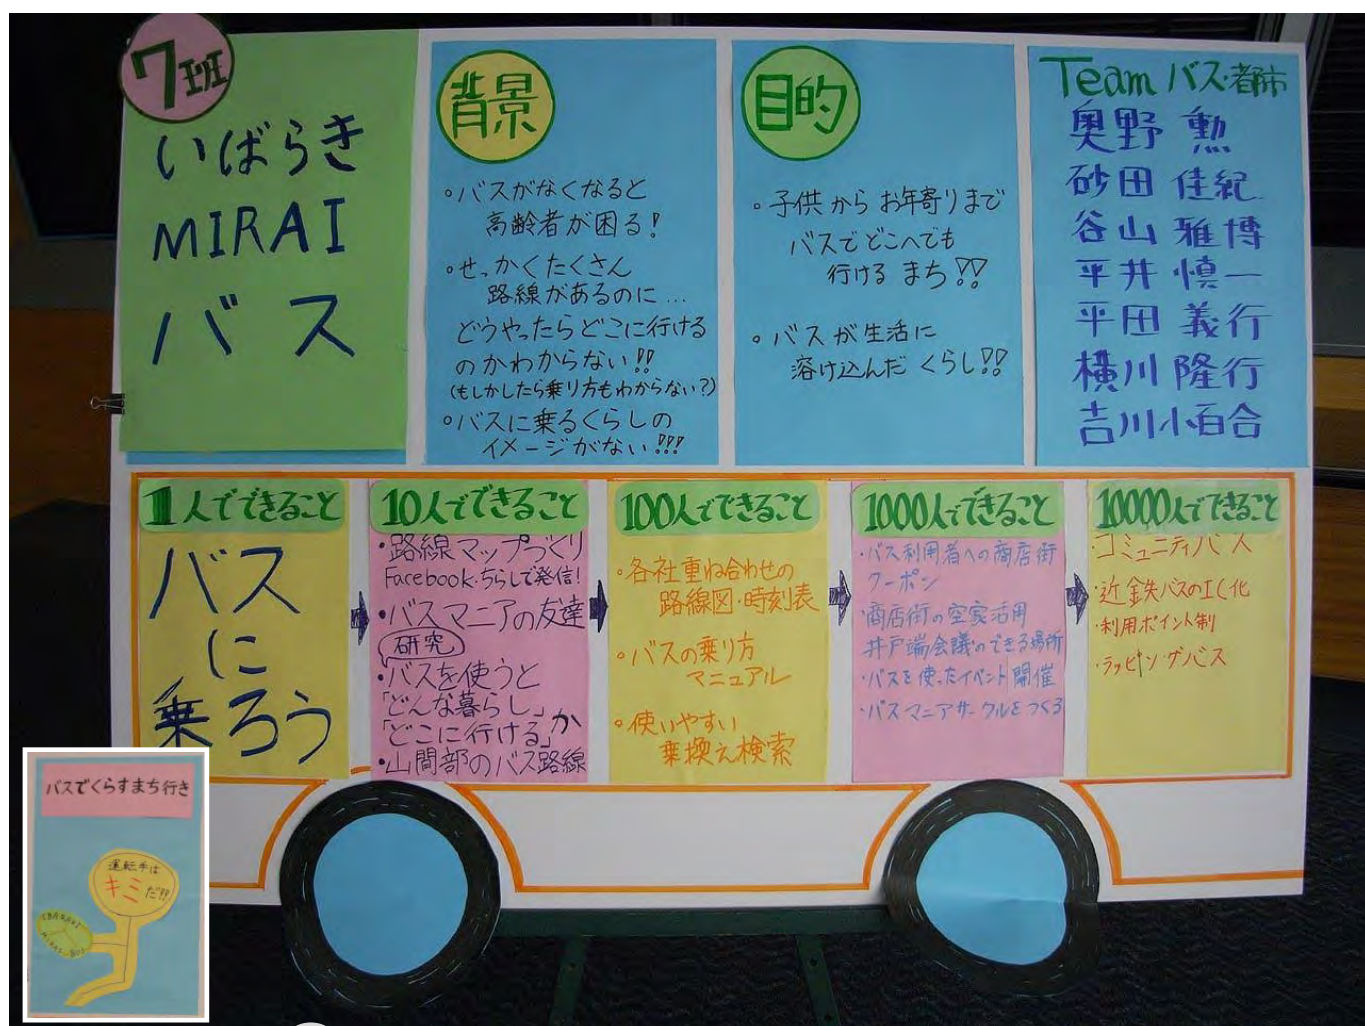 7班
いばらき
MIRAI
バス
背景
・バスがなくなると
高齢者が困る!
・せっかくたくさん
路線があるのに…
どうやったらどこに行ける
のかわからない!!
(もしかしたら乗り方もわからない?)
・バスに乗るくらしの
イメージがない!!!
目的
・子供からお年寄りまで
バスでどこへでも
行けるまち!!
・バスが生活に
溶け込んだくらし!!
Team バス・都市
奥野 勲
砂田 佳紀
谷山 雅博
平井 慎一
平田 義行
横川 隆行
吉川小百合
1人でできること
バス
に
乗ろう
10人でできること
・路線マップづくり
Facebook・ちらしで発信!
・バスマニアの友達
研究
・バスを使うと
「どんな暮らし」
「どこに行ける」か
・山間部のバス路線
100人でできること
・各社重ね合わせの
路線図・時刻表
・バスの乗り方
マニュアル
・使いやすい
乗換え検索
1000人でできること
・バス利用者への商店街
クーポン
・商店街の空家活用
井戸端会議のできる場所
・バスを使ったイベント開催
・バスマニアサークルをつくる
10000人でできること
・コミュニティバス
・近鉄バスのIC化
・利用ポイント制
・ラッピングバス
バスでくらすまち行き
運転手は
キミだ!!
IBARAKI